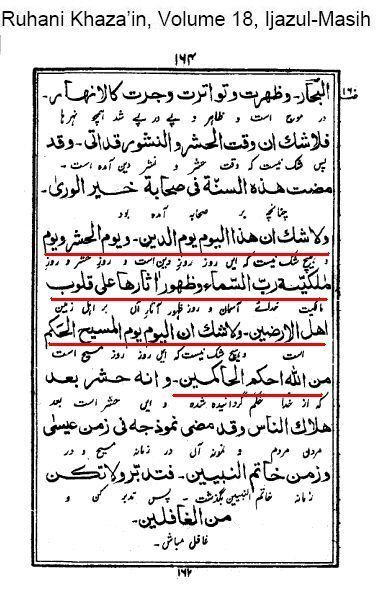 Ruhani Khaza'in, Volume 18, Ijazul-Masih
۱۶۴
البحار۔ وظهرت وتواترت وجرت كالانهار۔
در موج است و ظاہر و پے در پے شد ہمچو نہرہا
فلا شك ان وقت الحشر والنشور قد اتى۔ وقد
پس شک نیست کہ وقت حشر و نشر دین آمدہ است۔
مضت هذه السنّة في صحابة خير الورى۔
چنانچہ بر صحابہ آمدہ بود
ولا شك ان هذا اليوم يوم الدين۔ ويوم الحشر ويوم
و ہیچ شک نیست کہ ایں روز روزِ دین است و روز حشر و روز
ملكيّت ربّ السّماء وظهور اٰثارها على قلوب
مالکیت خدائے آسمان و روز ظہور آثارِ آں بر اہل زمین
اهل الارضين۔ ولا شك ان اليوم يوم المسيح الحَكَم
است و ہیچ شک نیست کہ ایں روز روز مسیح است
من الله احكم الحاكمين۔ وانه حشر بعد
کہ از خدا حکم گردانیدہ شدہ و ایں حشر است بعد
هلاك الناس وقد مضى نموذجه في زمن عيسٰى
مردن مردم و نمونہ آں در زمانہ مسیح و در
وزمن خاتم النبيين۔ فتدبّر ولا تكن
زمانہ خاتم النبیین بگذشت۔ پس تدبر کن و
من الغافلين۔
غافل مباش۔
۱۶۲